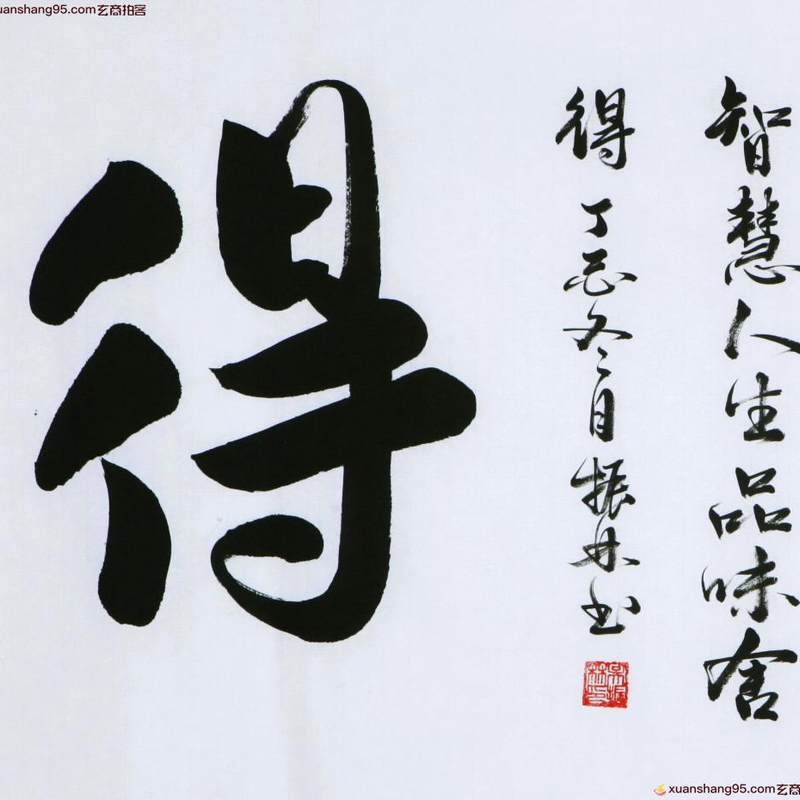 xuanshang95.com玄商拍客
智慧人生品味舍
得 丁冬月振林书
得
xuanshang95.com玄商